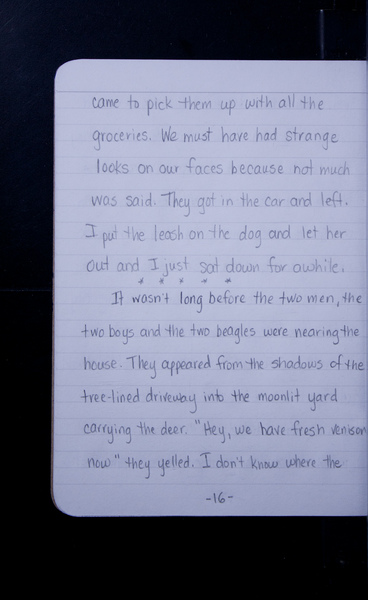 came to pick them up with all the
groceries. We must have had strange
looks on our faces because not much
was said. They got in the car and left.
I put the leash on the dog and let her
out and I just sat down for awhile.
* * * * *
It wasn't long before the two men, the
two boys and the two beagles were nearing the
house. They appeared from the shadows of the
tree-lined driveway into the moonlit yard
carrying the deer. "Hey, we have fresh venison
now" they yelled. I don't know where the
-16-